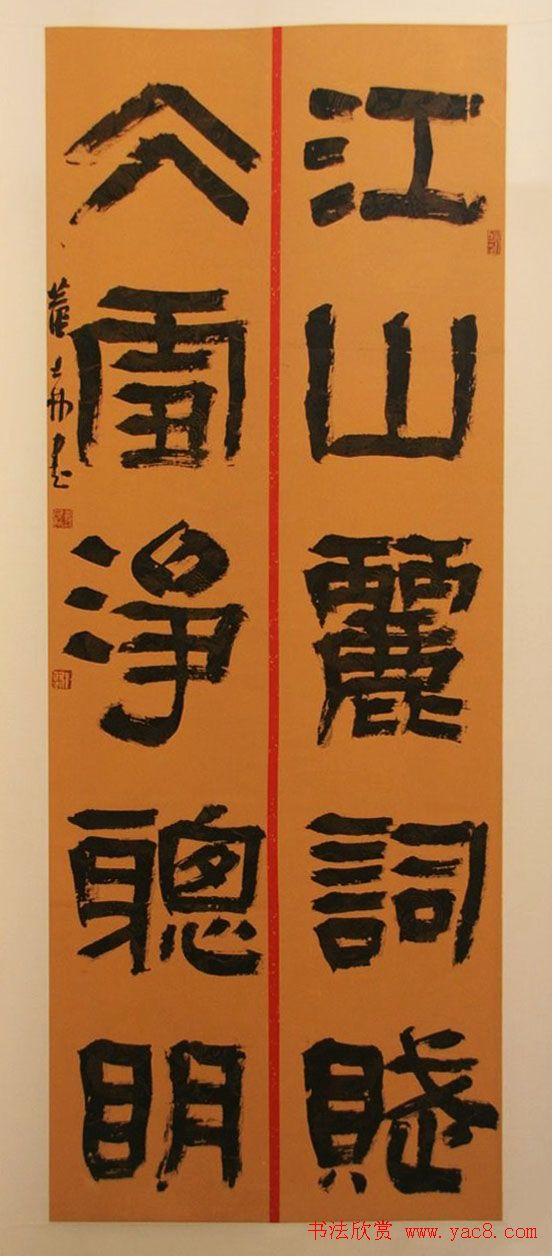 江山麗詞賦
仌雪淨聰明
书法欣赏 www.yac8.com